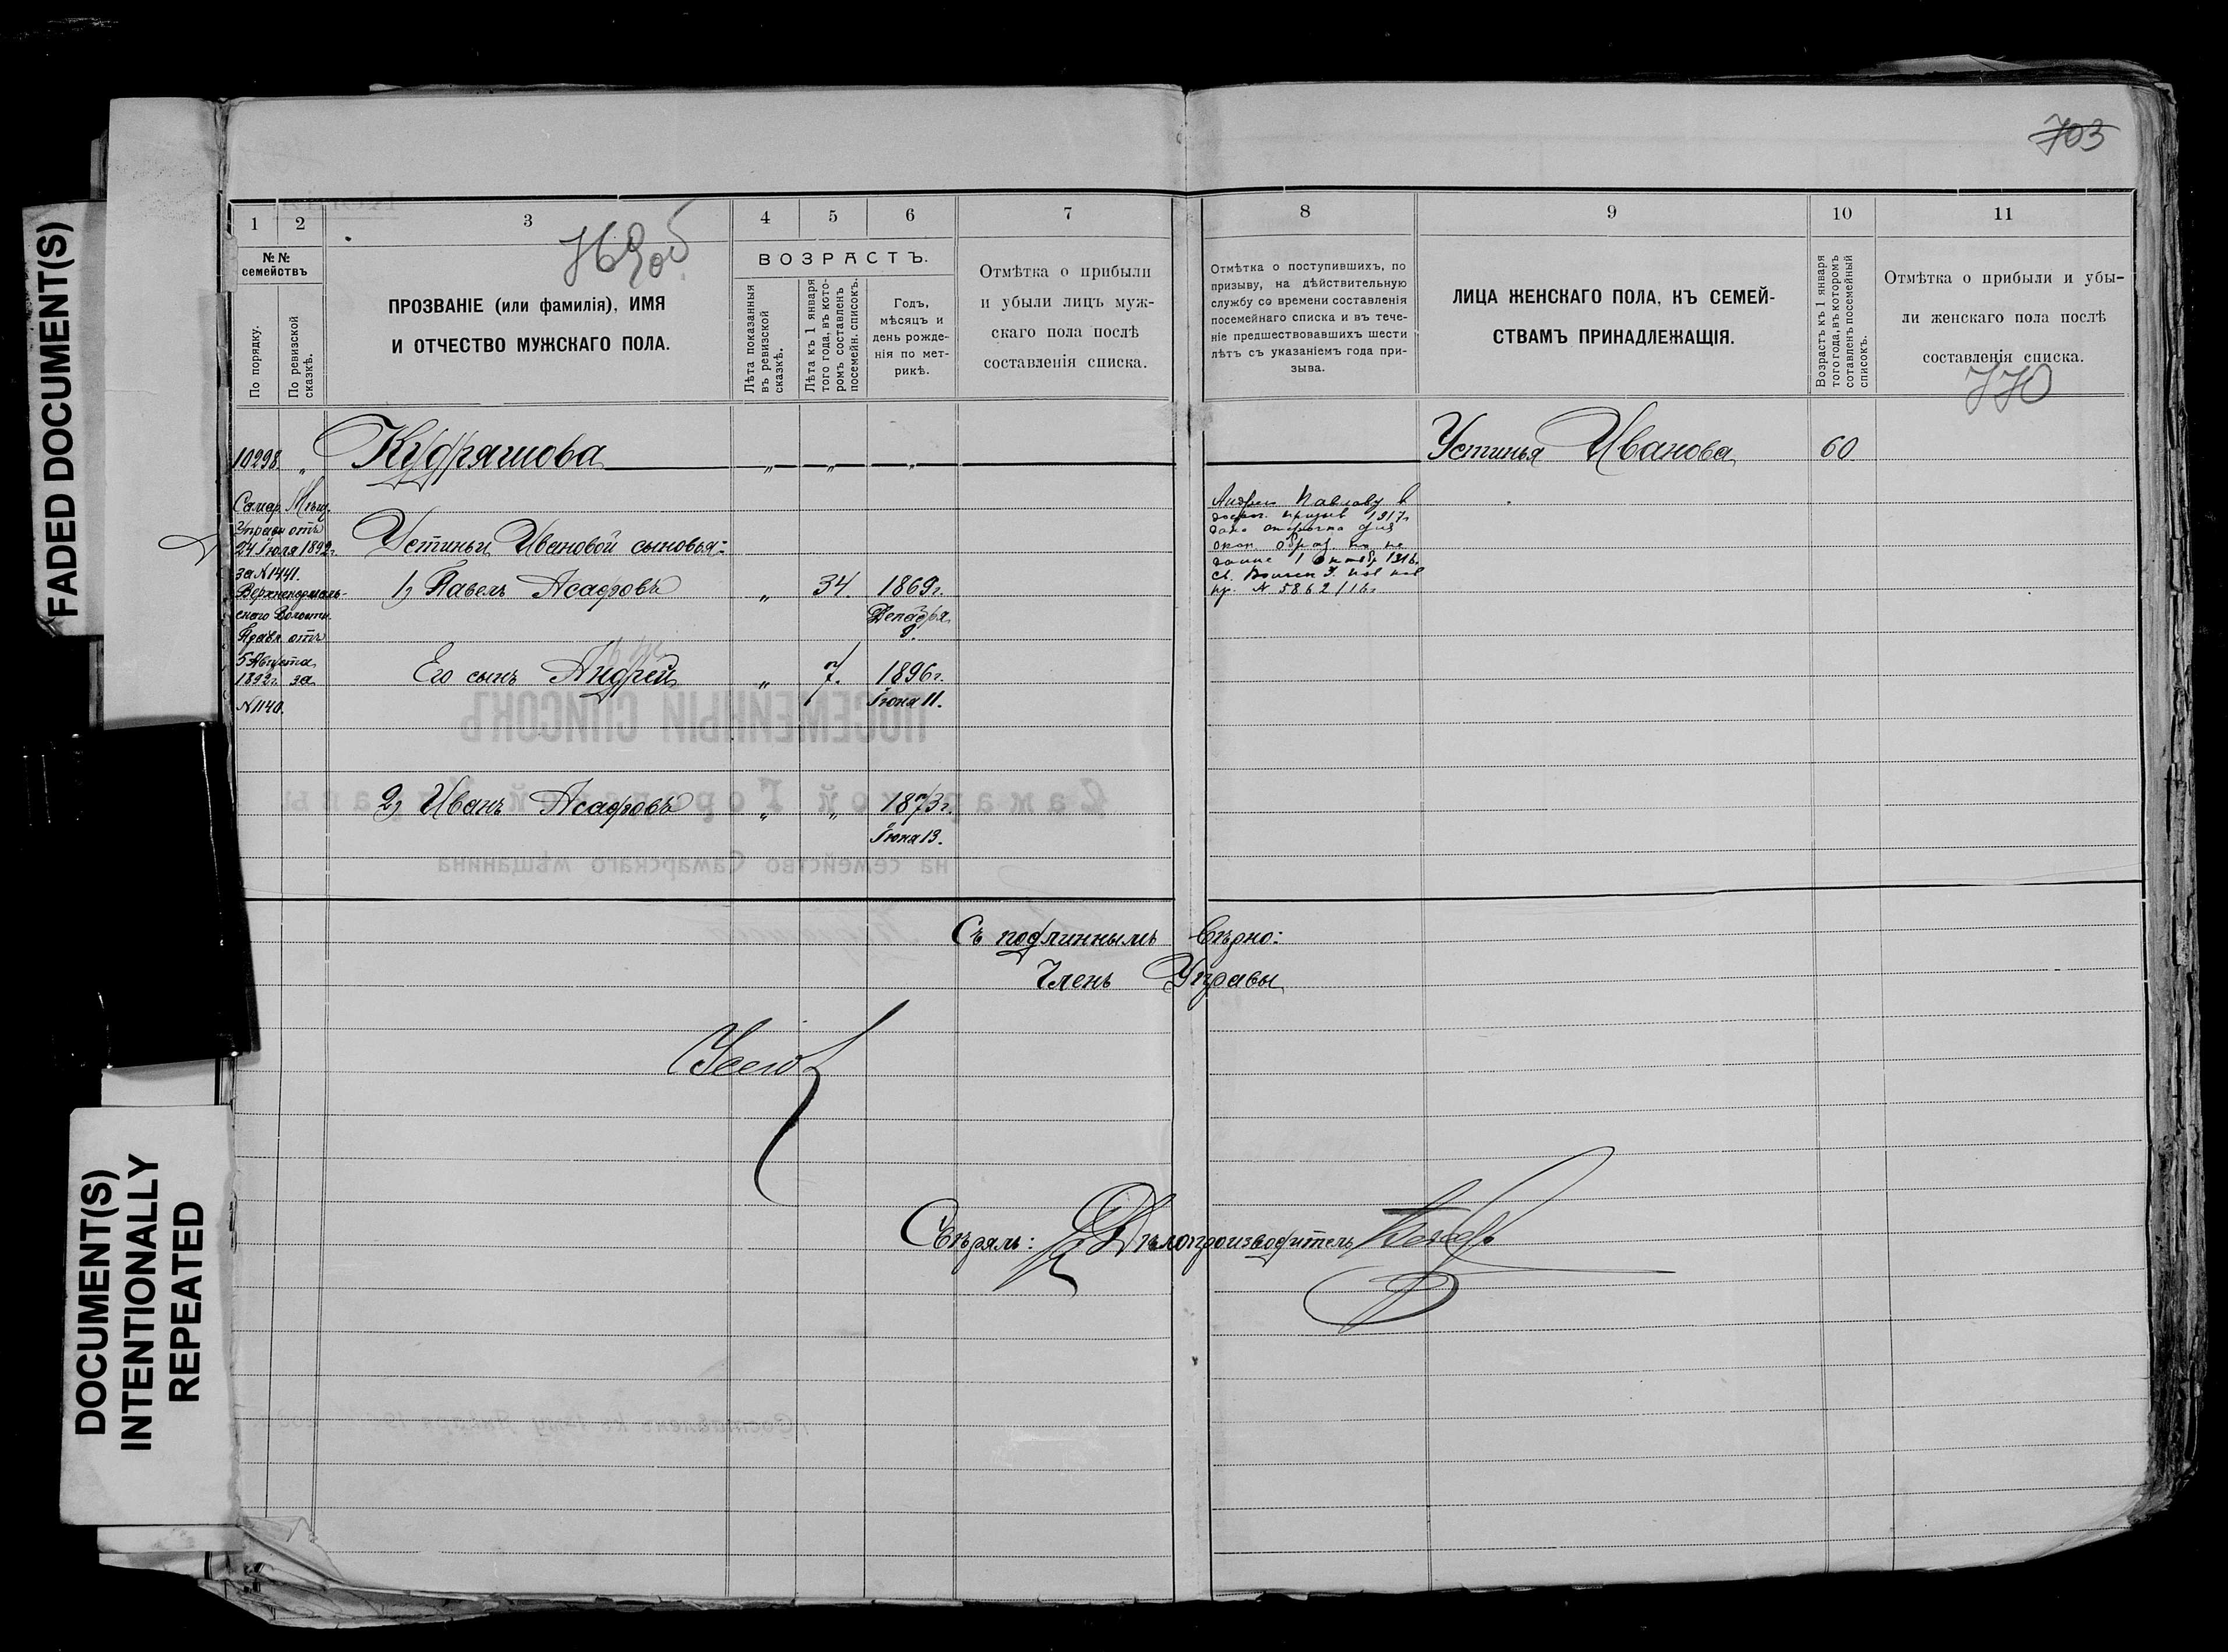 FADED DOCUMENT(S)
DOCUMENT(S)
INTENTIONALLY
REPEATED
703
1
2
3
4
5
6
7
№№
семействъ
По порядку.
По ревизской
сказкѣ.
ПРОЗВАНІЕ (или фамилія), ИМЯ
И ОТЧЕСТВО МУЖСКАГО ПОЛА.
ВОЗРАСТЪ.
Лѣта показанныя
въ ревизской
сказкѣ.
Лѣта къ 1 января
того года, въ кото-
ромъ составленъ
посемейн. списокъ.
Годъ,
мѣсяцъ и
день рожде-
нія по мет-
рикѣ.
Отмѣтка о прибыли
и убыли лицъ муж-
скаго пола послѣ
составленія списка.
8
9
10
11
Отмѣтка о поступившихъ, по
призыву, на дѣйствительную
службу со времени составленія
посемейнаго списка и въ тече-
ніе предшествовавшихъ шести
лѣтъ съ указаніемъ года при-
зыва.
ЛИЦА ЖЕНСКАГО ПОЛА, КЪ СЕМЕЙ-
СТВАМЪ ПРИНАДЛЕЖАЩІЯ.
Возрастъ къ 1 января
того года, въ которомъ
сотавленъ посемейный
списокъ.
Отмѣтка о прибыли и убы-
ли женскаго пола послѣ
составленія списка.
10298 " Кудряшова " " " Устинья Иванова 60
Самар. Мѣщ.
Управ. отъ
24 Іюля 1892г.
за №1441.
Волостн.
Правл. отъ
5 Августа
1892г. за
№1140.
Устиньи Ивановой сыновья:
1, Павелъ Асафовъ " 34. 1869г.
Декабря
9.
Его сынъ Андрей " 7. 1896г.
Іюня 11.
2, Иванъ Асафовъ " " 1873г.
Іюня 13.
Андрею Павлову в
призыв 1917г
дана отсрочка для
окон. образ. но не
далѣе 1 Октябр 1916г.
№ 5862/16г
Съ подлиннымъ вѣрно:
Членъ Управы
Свѣрялъ: Дѣлопроизводитель
ПОСЕМЕЙНЫЙ СПИСОКЪ
Самарской Городской Управы
на семейство Самарскаго мѣщанина